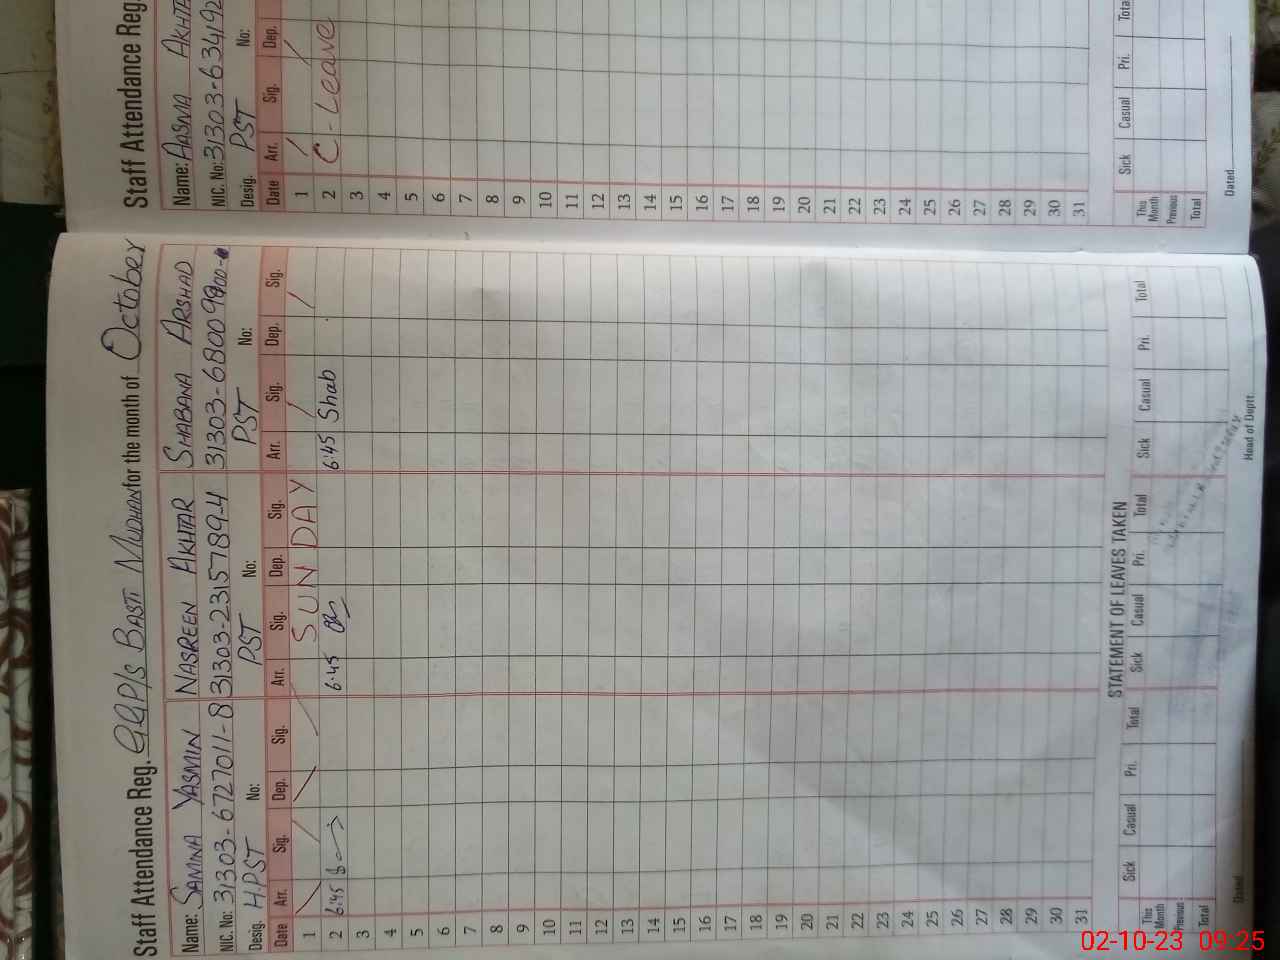 Staff Attendance Reg. GGP/s BASTI MUDHAN for the month of October
Name: SAMINA YASMIN NASREEN AKHTAR SHABANA ARSHAD
NIC. No: 31303-6727011-8 31303-2315789-4 31303-68009
Desig. H.PST No: PST No: PST No:
Date Arr. Sig. Dep. Sig. Arr. Sig. Dep. Sig. Arr. Sig. Dep. Sig.
1 SUNDAY
2 6:45 6:45 6:45 Shab
3
4
5
6
7
8
9
10
11
12
13
14
15
16
17
18
19
20
21
22
23
24
25
26
27
28
29
30
31
STATEMENT OF LEAVES TAKEN
Sick Casual Pri. Total Sick Casual Pri. Total Sick Casual Pri. Total
This Month
Previous
Total
Dated Head of Deptt.
Staff Attendance Reg.
Name: AASMA AKHTA
NIC. No: 31303-634192
Desig. PST No:
Date Arr. Sig. Dep.
1
2 C-Leave
3
4
5
6
7
8
9
10
11
12
13
14
15
16
17
18
19
20
21
22
23
24
25
26
27
28
29
30
31
Sick Casual Pri. Tota
This Month
Previous
Total
Dated
02-10-23 09:25